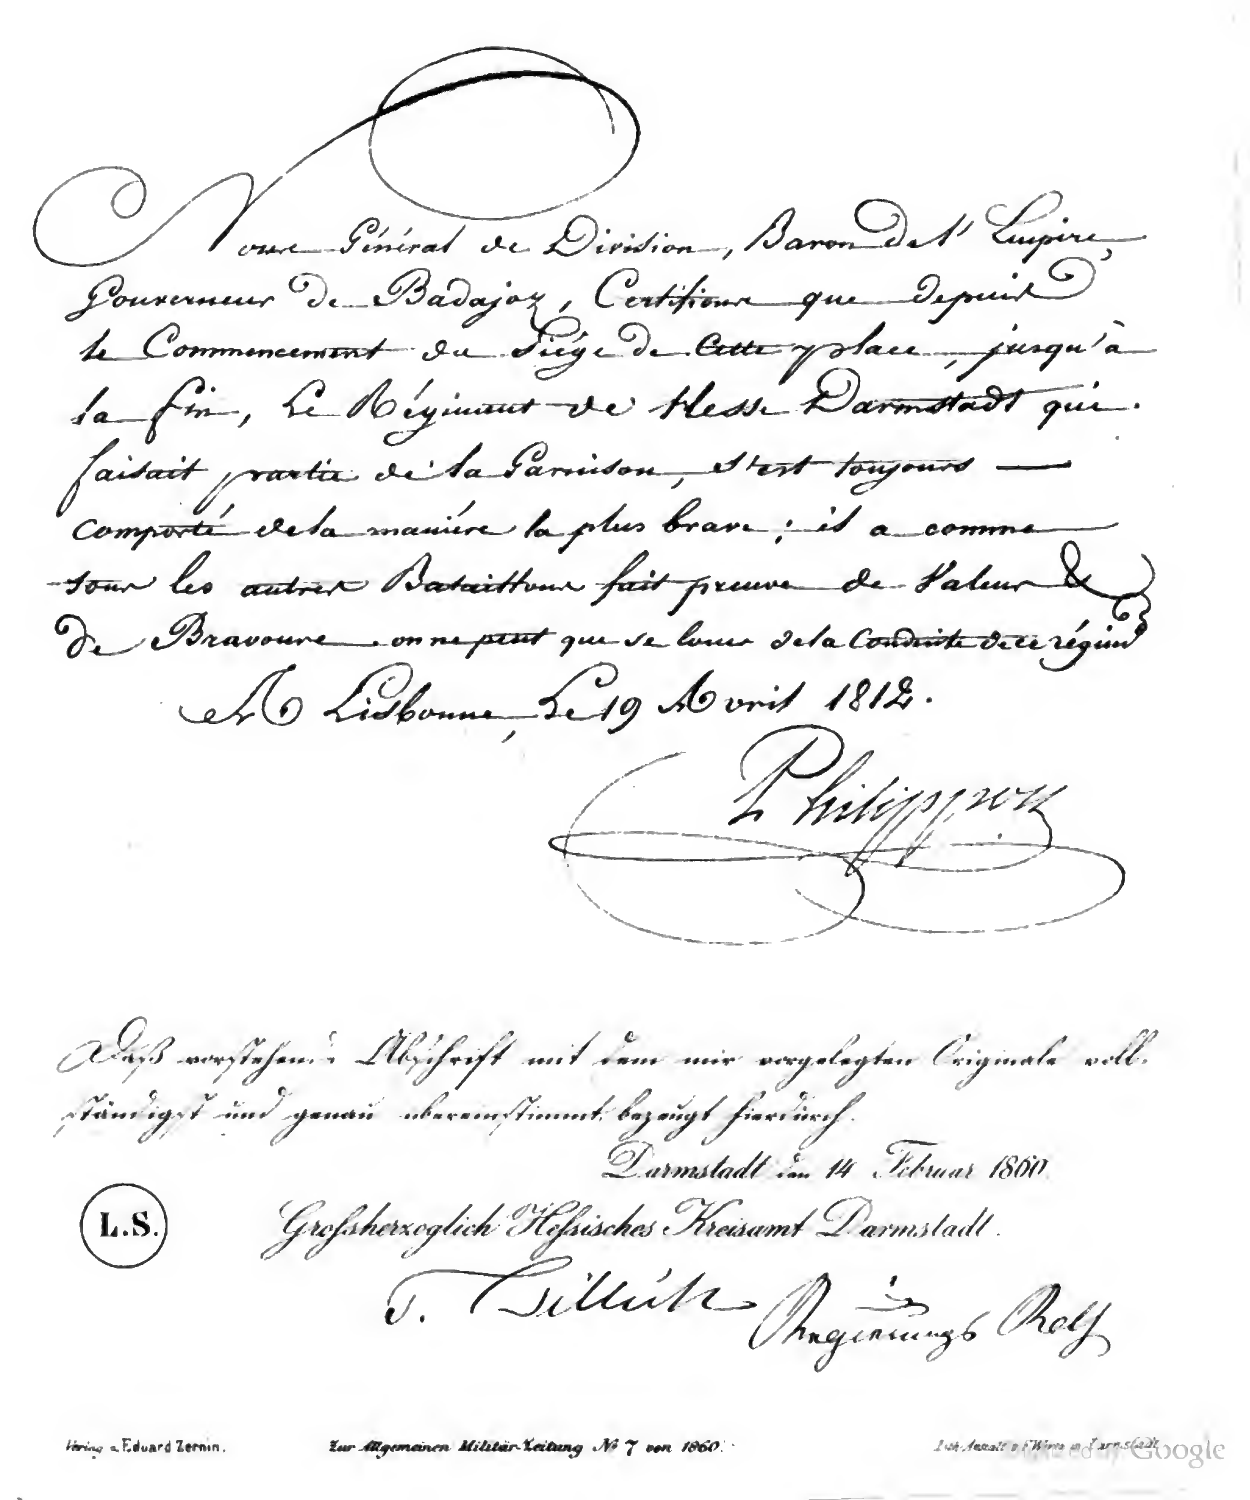 Nous Général de Division, Baron de l'Empire,
Gouverneur de Badajoz, Certifions que depuis
le Commencement du Siége de Cette place, jusqu'à
la fin, Le Régiment de Hesse Darmstadt qui
faisait partie de la Garnison, s'est toujours —
comporté de la maniére la plus brave; il a comme
tous les autres Bataillons fait preuve de Valeur &
de Bravoure. on ne peut que se louer de la Conduite de ce régimt
A Lisbonne, Le 19 Avril 1812.
Philippon
Daß vorstehende Abschrift mit dem mir vorgelegten Originale voll-
ständigst und genau übereinstimmt, bezeugt hierdurch.
Darmstadt den 14 Februar 1860.
L.S. Großherzoglich Hessisches Kreisamt Darmstadt.
Regierungs
Verlag v. Eduard Zernin.
Zur Allgemeinen Militär-Zeitung No 7 von 1860.
Lith. Anstalt v. F. Wirtz in Darmstadt
Digitized by Google